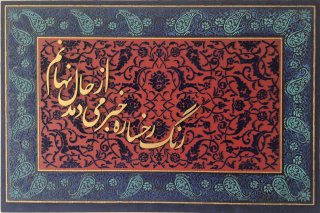 رنگ رخساره خبر می دهد
از حال نهانم